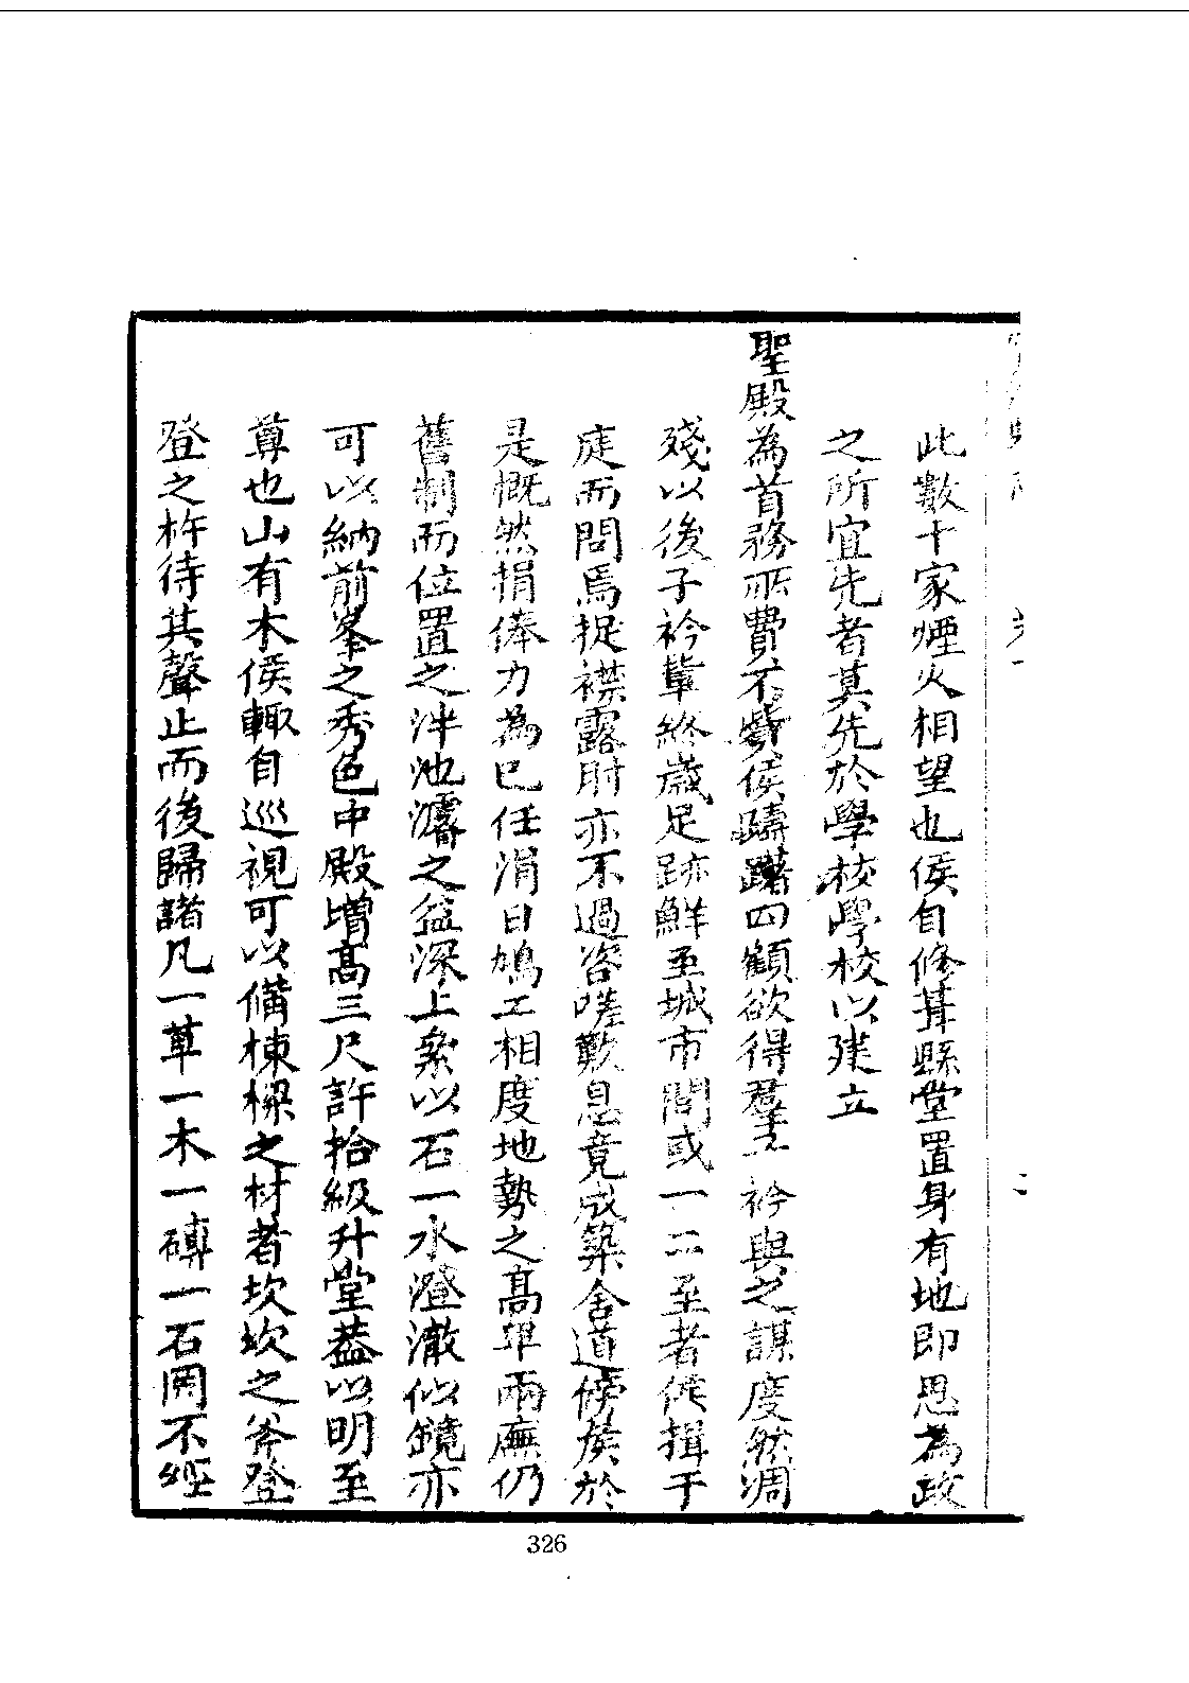 此數十家煙火相望也侯自修葺縣堂置身有地即思為政
之所宜先者莫先於學校學校以建立
聖殿為首務所費不貲侯躊躇四顧欲得羣子衿與之謀度然凋
殘以後子衿輩終歲足跡鮮至城市間或一二至者佐揖于
庭而問焉捉襟露肘亦不過咨嗟歎息竟成築舍道傍侯於
是慨然捐俸力為已任涓日鳩工相度地勢之高卑兩廡仍
舊制而位置之泮池濬之益深上絫以石一水澄澈似鏡亦
可以納前峯之秀色中殿增高三尺許拾級升堂葢以明至
尊也山有木侯輙自巡視可以備棟樑之材者坎坎之斧登
登之杵待其聲止而後歸諸凡一草一木一磚一石罔不經
326